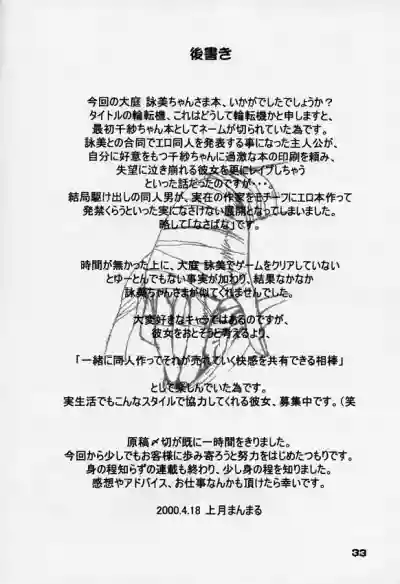 後書き
今回の大庭 詠美ちゃんさま本、いかがでしたでしょうか？
タイトルの輪転機、これはどうして輪転機かと申しますと、
最初千紗ちゃん本としてネームが切られていた為です。
詠美との合同でエロ同人を発表する事になった主人公が、
自分に好意をもつ千紗ちゃんに過激な本の印刷を頼み、
失望に泣き崩れる彼女を更にレイプしちゃう
といった話だったのですが・・・
結局駆け出しの同人男が、実在の作家をモチーフにエロ本作って
発禁くらうといった実になさけない展開となってしまいました。
略して「なさばな」です。
時間が無かった上に、大庭 詠美でゲームをクリアしていない
とゆーとんでもない事実が加わり、結果なかなか
詠美ちゃんさまが似てくれませんでした。
大変好きなキャラではあるのですが、
彼女をおとそうと考えるより、
「一緒に同人作ってそれが売れていく快感を共有できる相棒」
として楽しんでいた為です。
実生活でもこんなスタイルで協力してくれる彼女、募集中です。(笑
原稿〆切が既に一時間をきりました。
今回から少しでもお客様に歩み寄ろうと努力をはじめたつもりです。
身の程知らずの連載も終わり、少し身の程を知りました。
感想やアドバイス、お仕事なんかも頂けたら幸いです。
2000.4.18 上月まんまる
33